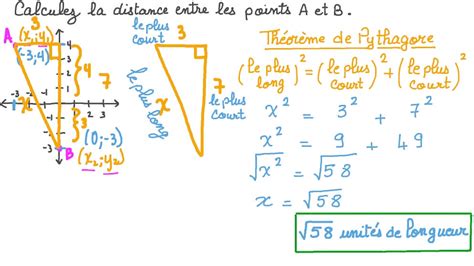 Calculez la distance entre les points A et B.
3
A (x₁; y₁)
(-3; 4)
4
3
2
1
4
7
x
3
-3
(0; -3)
B (x₂; y₂)
le plus court
3
le plus long
x
7
le plus court
Théorème de Pythagore
(le plus long)² = (le plus court)² + (le plus court)²
x² = 3² + 7²
x² = 9 + 49
√x² = √58
x = √58
√58 unités de longueur